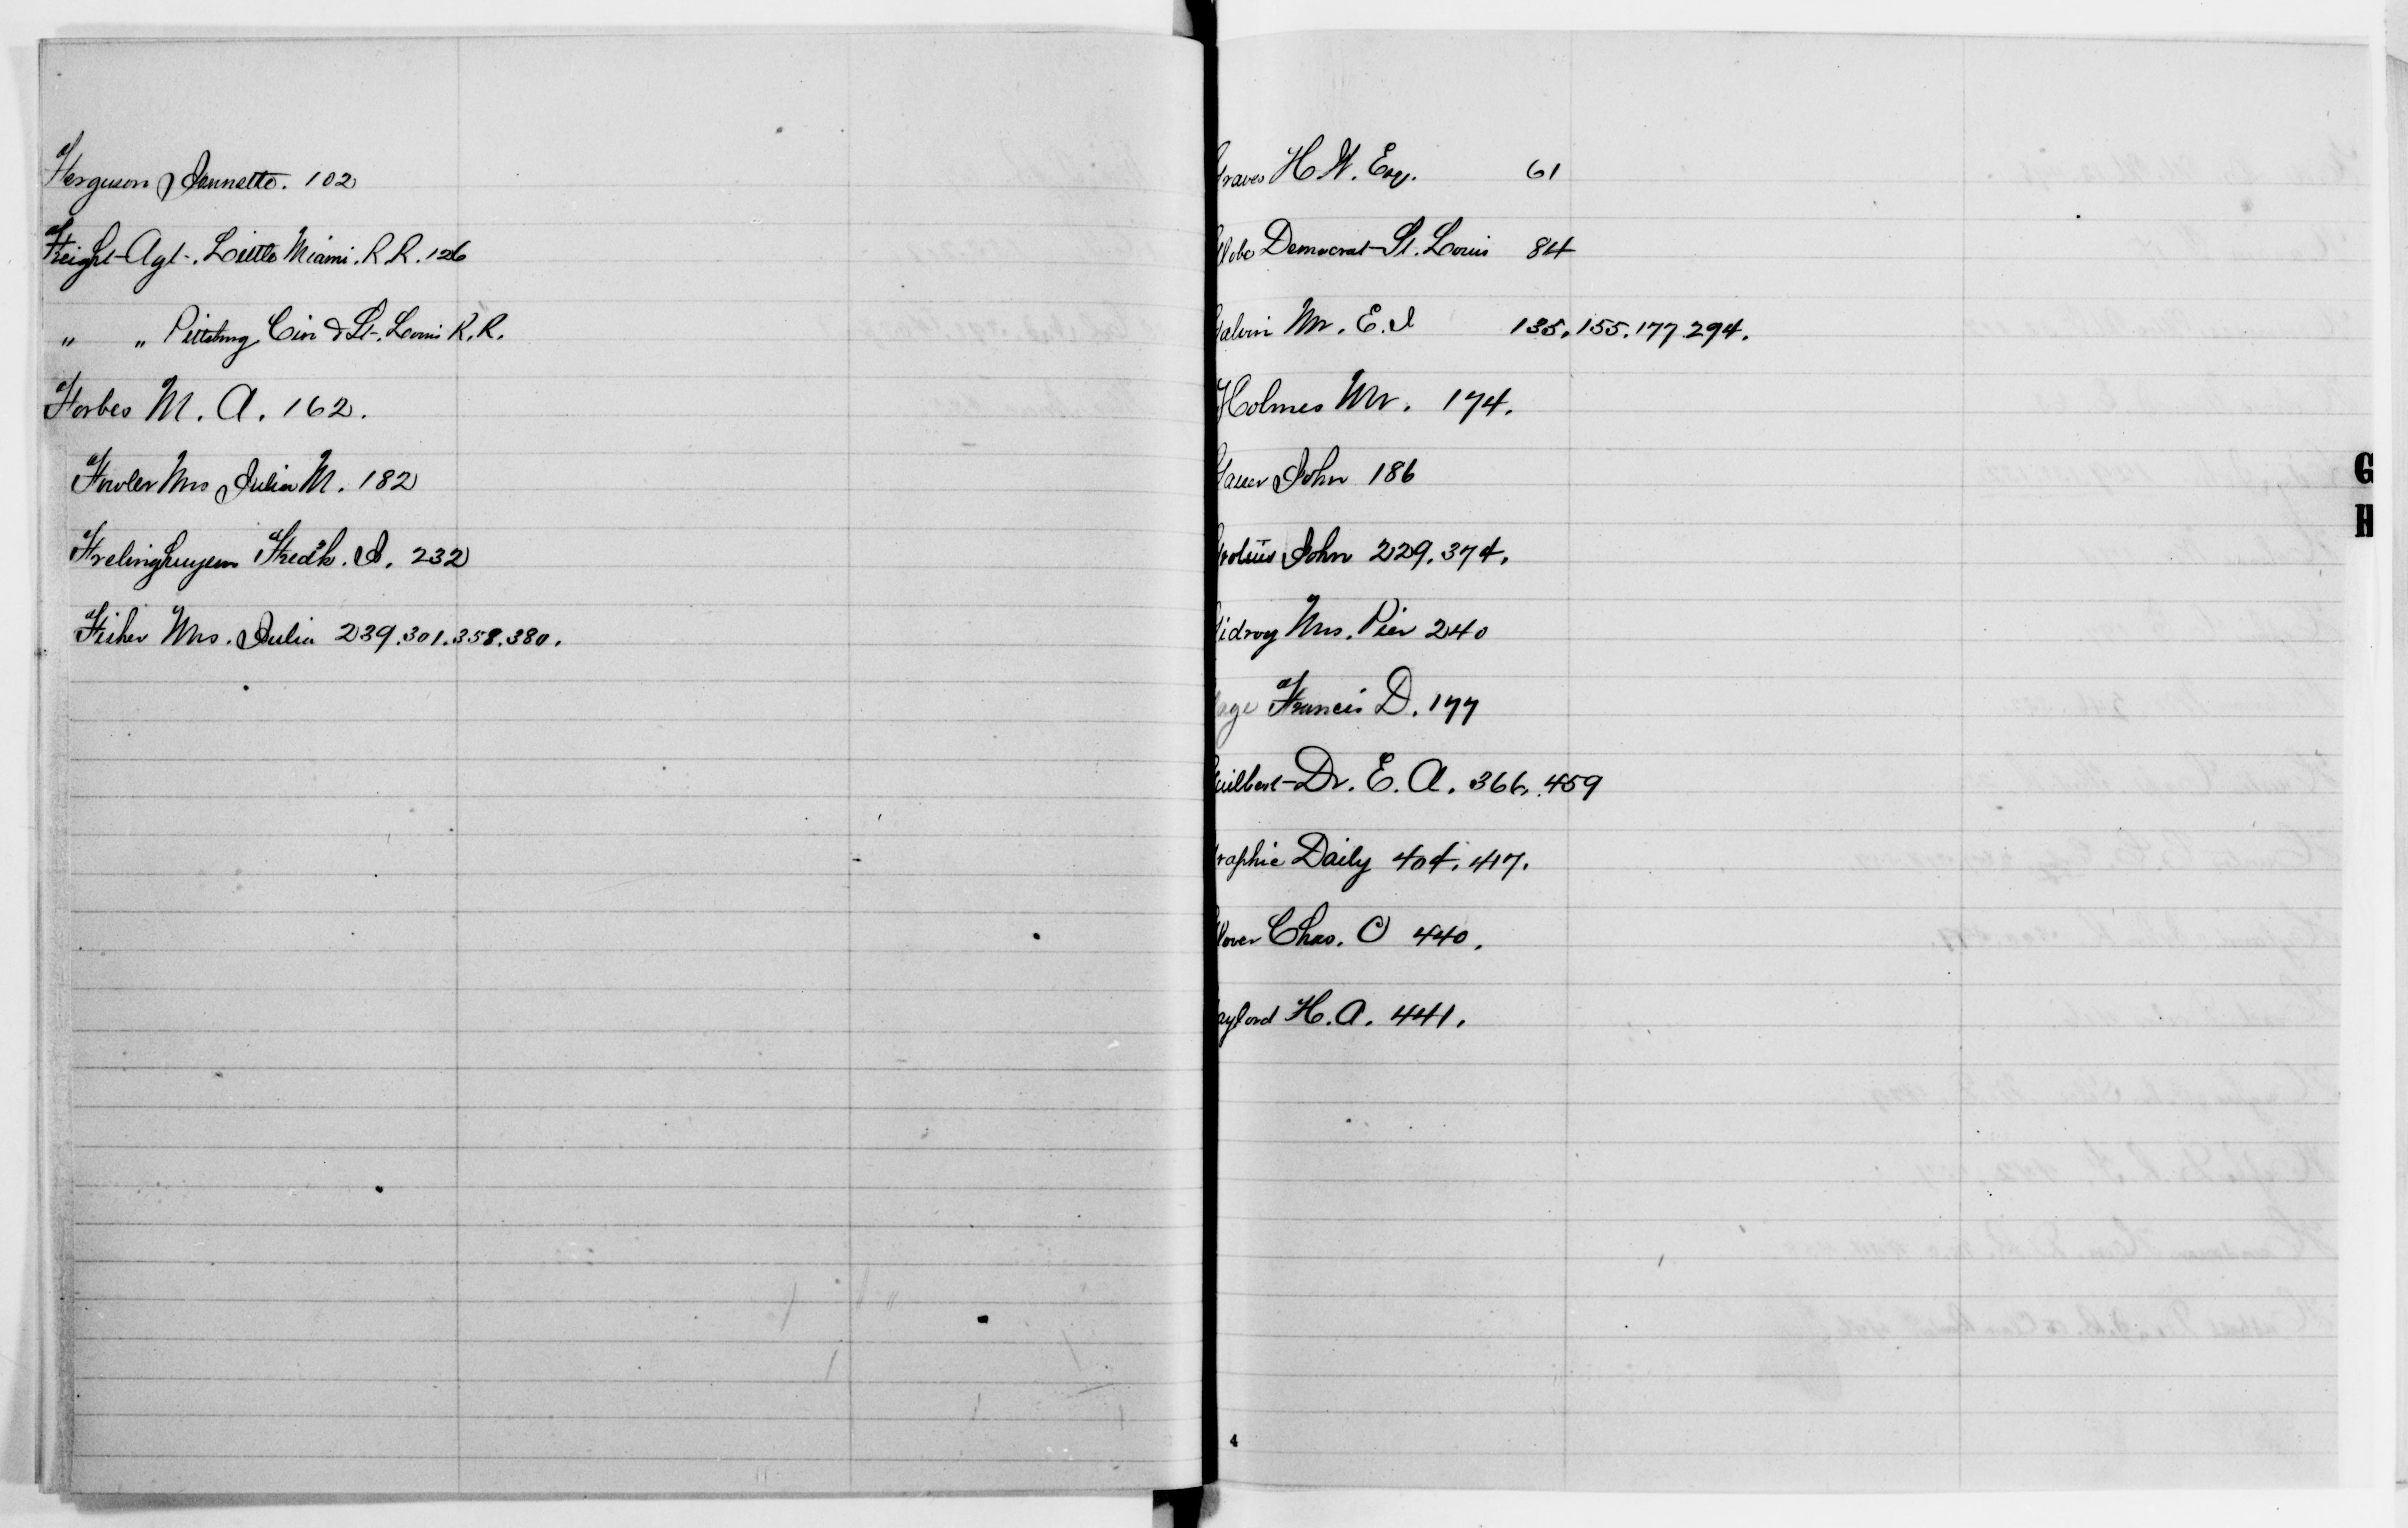 Ferguson Jennette. 102
Freight Agt. Little Miami. R.R. 126
" " Pittsburg, Cin & St. Louis R.R.
Forbes M. A. 162.
Fowler Mrs Julia M. 182
Frelinghuysen Fred'k. J. 232
Fisher Mrs. Julia 239.301.358.380.
Graves H W. Esq. 61
Globe Democrat St. Louis 84
Galvin Mr. E. I 135.155.177.294.
Holmes Mr. 174.
John 186
John 229.374.
Gidroy Mrs. Pier 240
Gage Francis D. 177
Guilbert Dr. E. A. 366. 459
Graphic Daily 404. 417.
Glover Chas. C 440.
Gaylord H. A. 441.
G
H
4